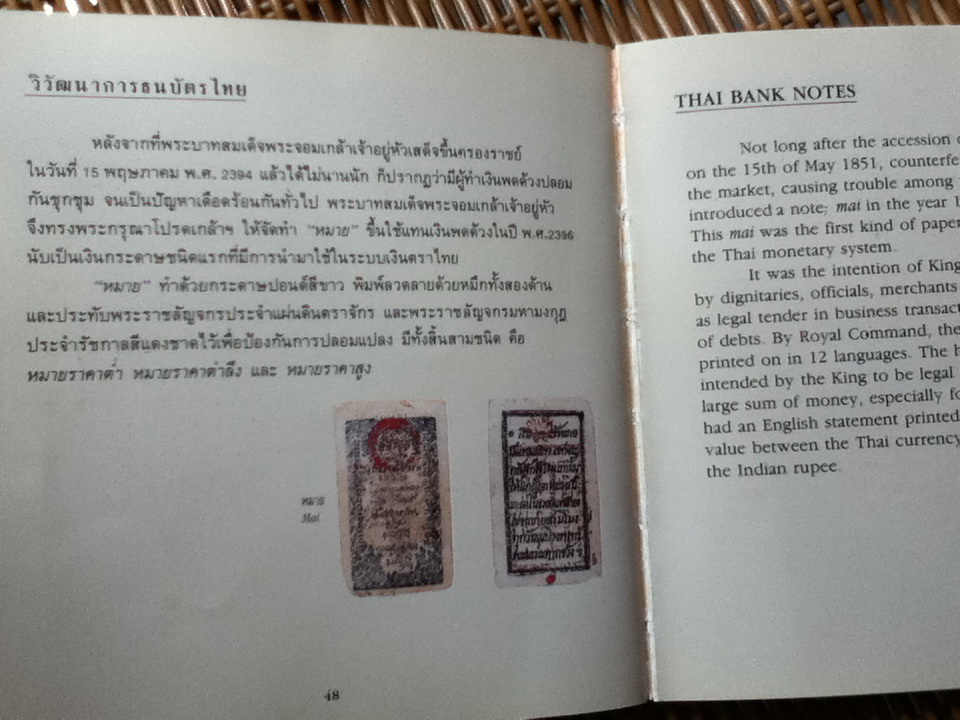 วิวัฒนาการธนบัตรไทย
หลังจากที่พระบาทสมเด็จพระจอมเกล้าเจ้าอยู่หัวเสด็จขึ้นครองราชย์
ในวันที่ 15 พฤษภาคม พ.ศ. 2394 แล้วได้ไม่นานนัก ก็ปรากฏว่ามีผู้ทำเงินพดด้วงปลอม
กันชุกชุม จนเป็นปัญหาเดือดร้อนกันทั่วไป พระบาทสมเด็จพระจอมเกล้าเจ้าอยู่หัว
จึงทรงพระกรุณาโปรดเกล้าฯ ให้จัดทำ "หมาย" ขึ้นใช้แทนเงินพดด้วงในปี พ.ศ.2396
นับเป็นเงินกระดาษชนิดแรกที่มีการนำมาใช้ในระบบเงินตราไทย
"หมาย" ทำด้วยกระดาษปอนด์สีขาว พิมพ์ลวดลายด้วยหมึกทั้งสองด้าน
และประทับพระราชลัญจกรประจำแผ่นดินตราจักร และพระราชลัญจกรมหามงกุฎ
ประจำรัชกาลสีแดงชาดไว้เพื่อป้องกันการปลอมแปลง มีทั้งสิ้นสามชนิด คือ
หมายราคาต่ำ หมายราคาตำลึง และ หมายราคาสูง
หมาย
Mai
48
THAI BANK NOTES
Not long after the accession
on the 15th of May 1851, counterfe
the market, causing trouble among
introduced a note; mai in the year
This mai was the first kind of paper
the Thai monetary system.
It was the intention of King
by dignitaries, officials, merchants
as legal tender in business transact
of debts. By Royal Command, the
printed on in 12 languages. The h
intended by the King to be legal
large sum of money, especially fo
had an English statement printed
value between the Thai currency
the Indian rupee.